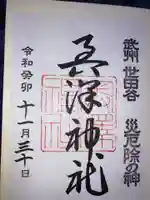 武州 世田谷 災厄除の神
奥澤神社
令和癸卯 十一月三十日